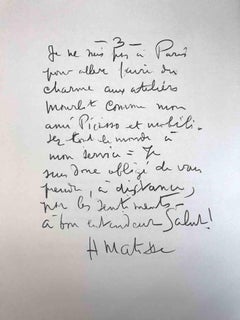 — 3 —
Je ne suis pas à Paris
pour aller faire du
charme aux ateliers
Mourlot comme mon
ami Picasso et mobili-
ser tout le monde à
mon service = Je
suis donc obligé de vous
prendre, à distance,
par les sentiments —
à bon entendeur Salut!
H Matisse